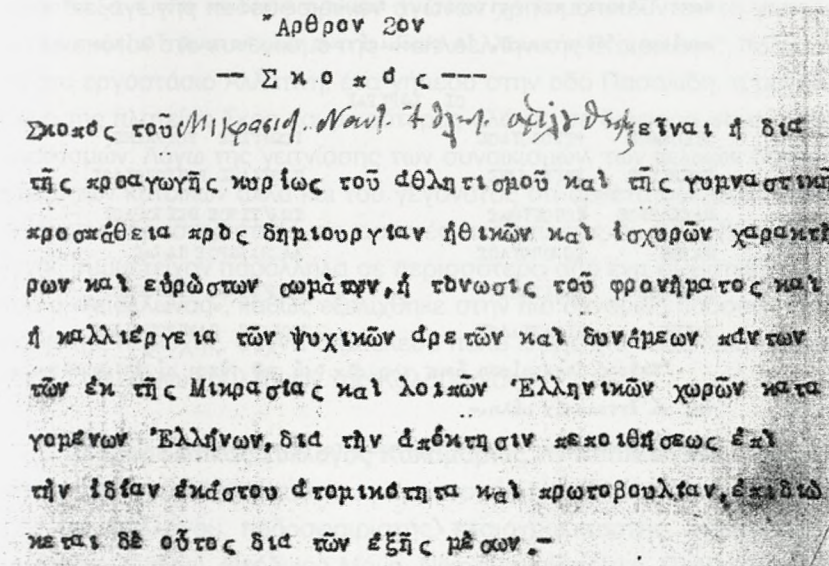 Ἄρθρον 2ον
— Σ κ ο π ό ς ——
Σκοπός τοῦ Μικρασ. Ναυτ. εἶναι ἡ διὰ
τῆς προαγωγῆς κυρίως τοῦ ἀθλητισμοῦ καὶ τῆς γυμναστικῆ
προσπάθεια πρὸς δημιουργίαν ἠθικῶν καὶ ἰσχυρῶν χαρακτή
ρων καὶ εὐρώστων σωμάτων, ἡ τόνωσις τοῦ φρονήματος καὶ
ἡ καλλιέργεια τῶν ψυχικῶν ἀρετῶν καὶ δυνάμεων πάντων
τῶν ἐκ τῆς Μικρασίας καὶ λοιπῶν Ἑλληνικῶν χωρῶν κατα
γομένων Ἑλλήνων, διὰ τὴν ἀπόκτησιν πεποιθήσεως ἐπὶ
τὴν ἰδίαν ἑκάστου ἀτομικότητα καὶ πρωτοβουλίαν, ἐπιδιώ
κεται δὲ οὗτος διὰ τῶν ἑξῆς μέσων.-